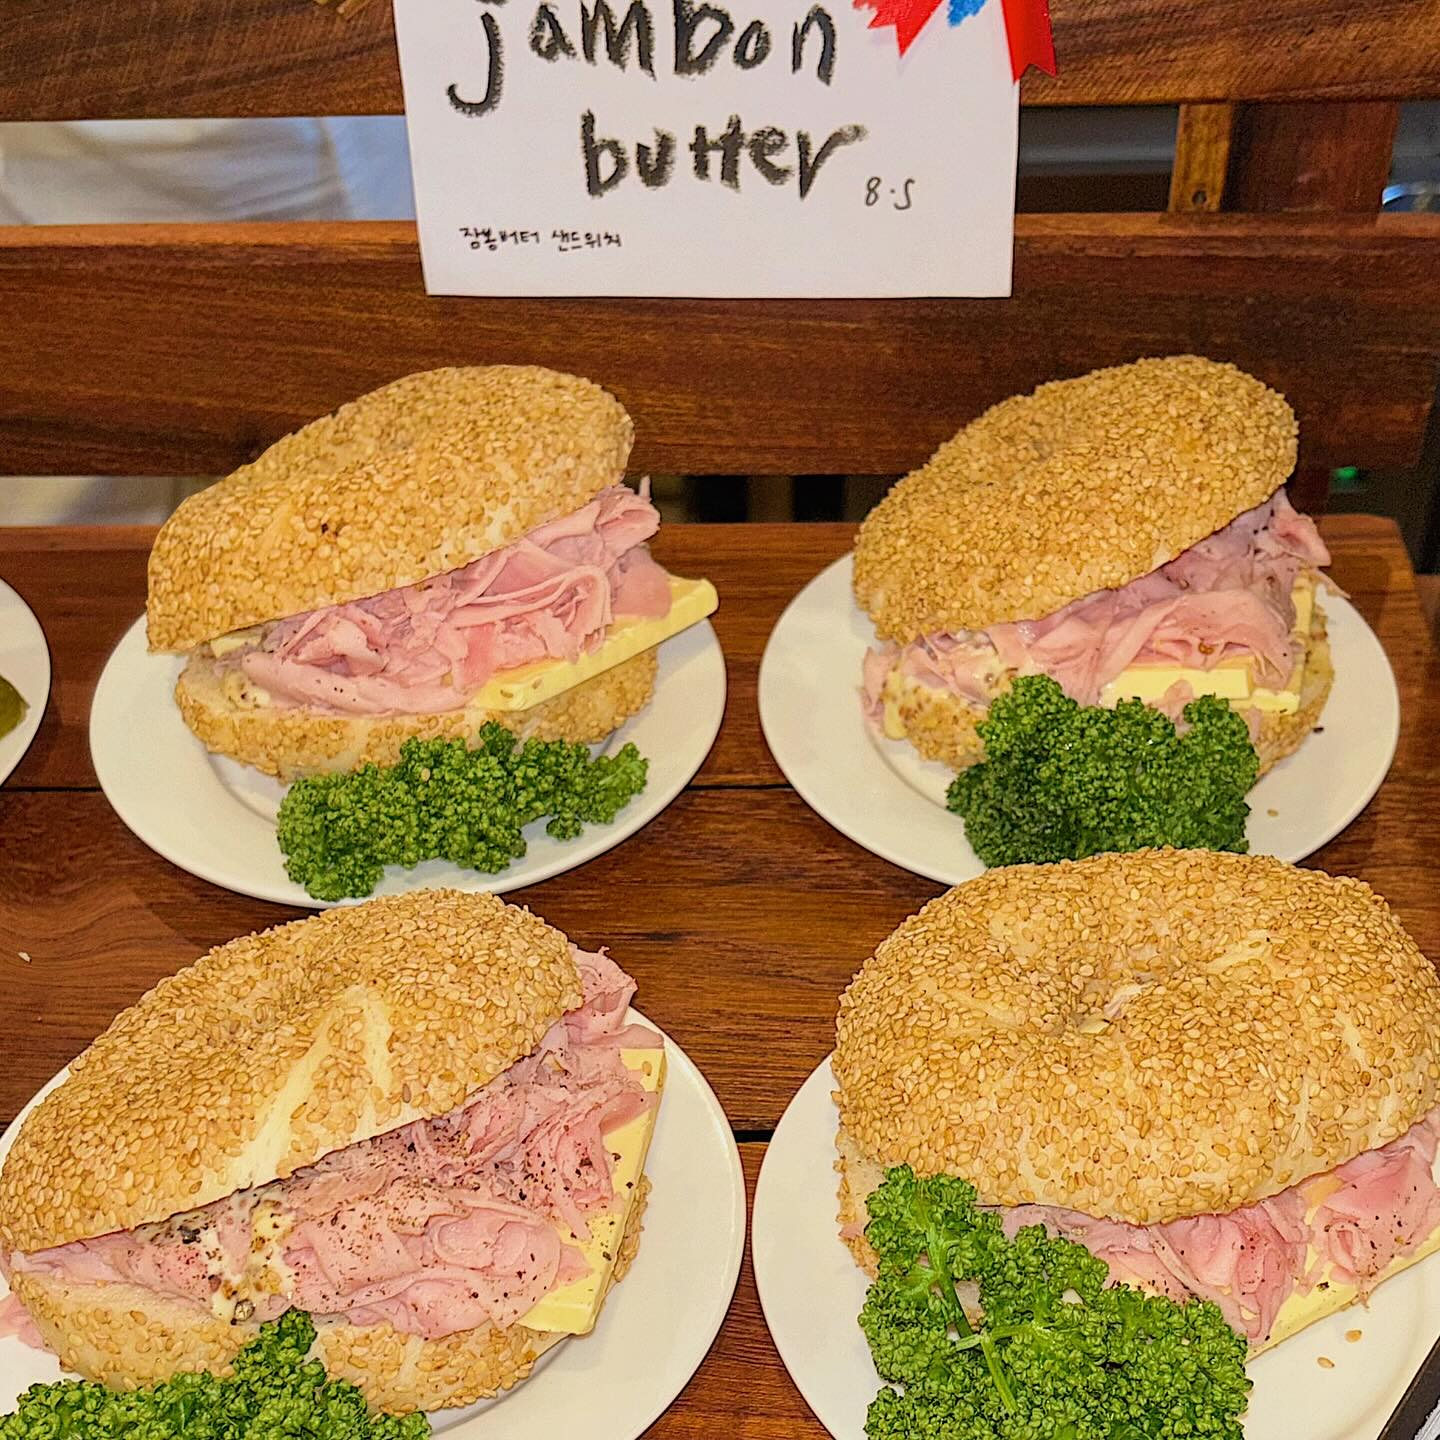 jambon
butter
8.5
잠봉버터 샌드위치